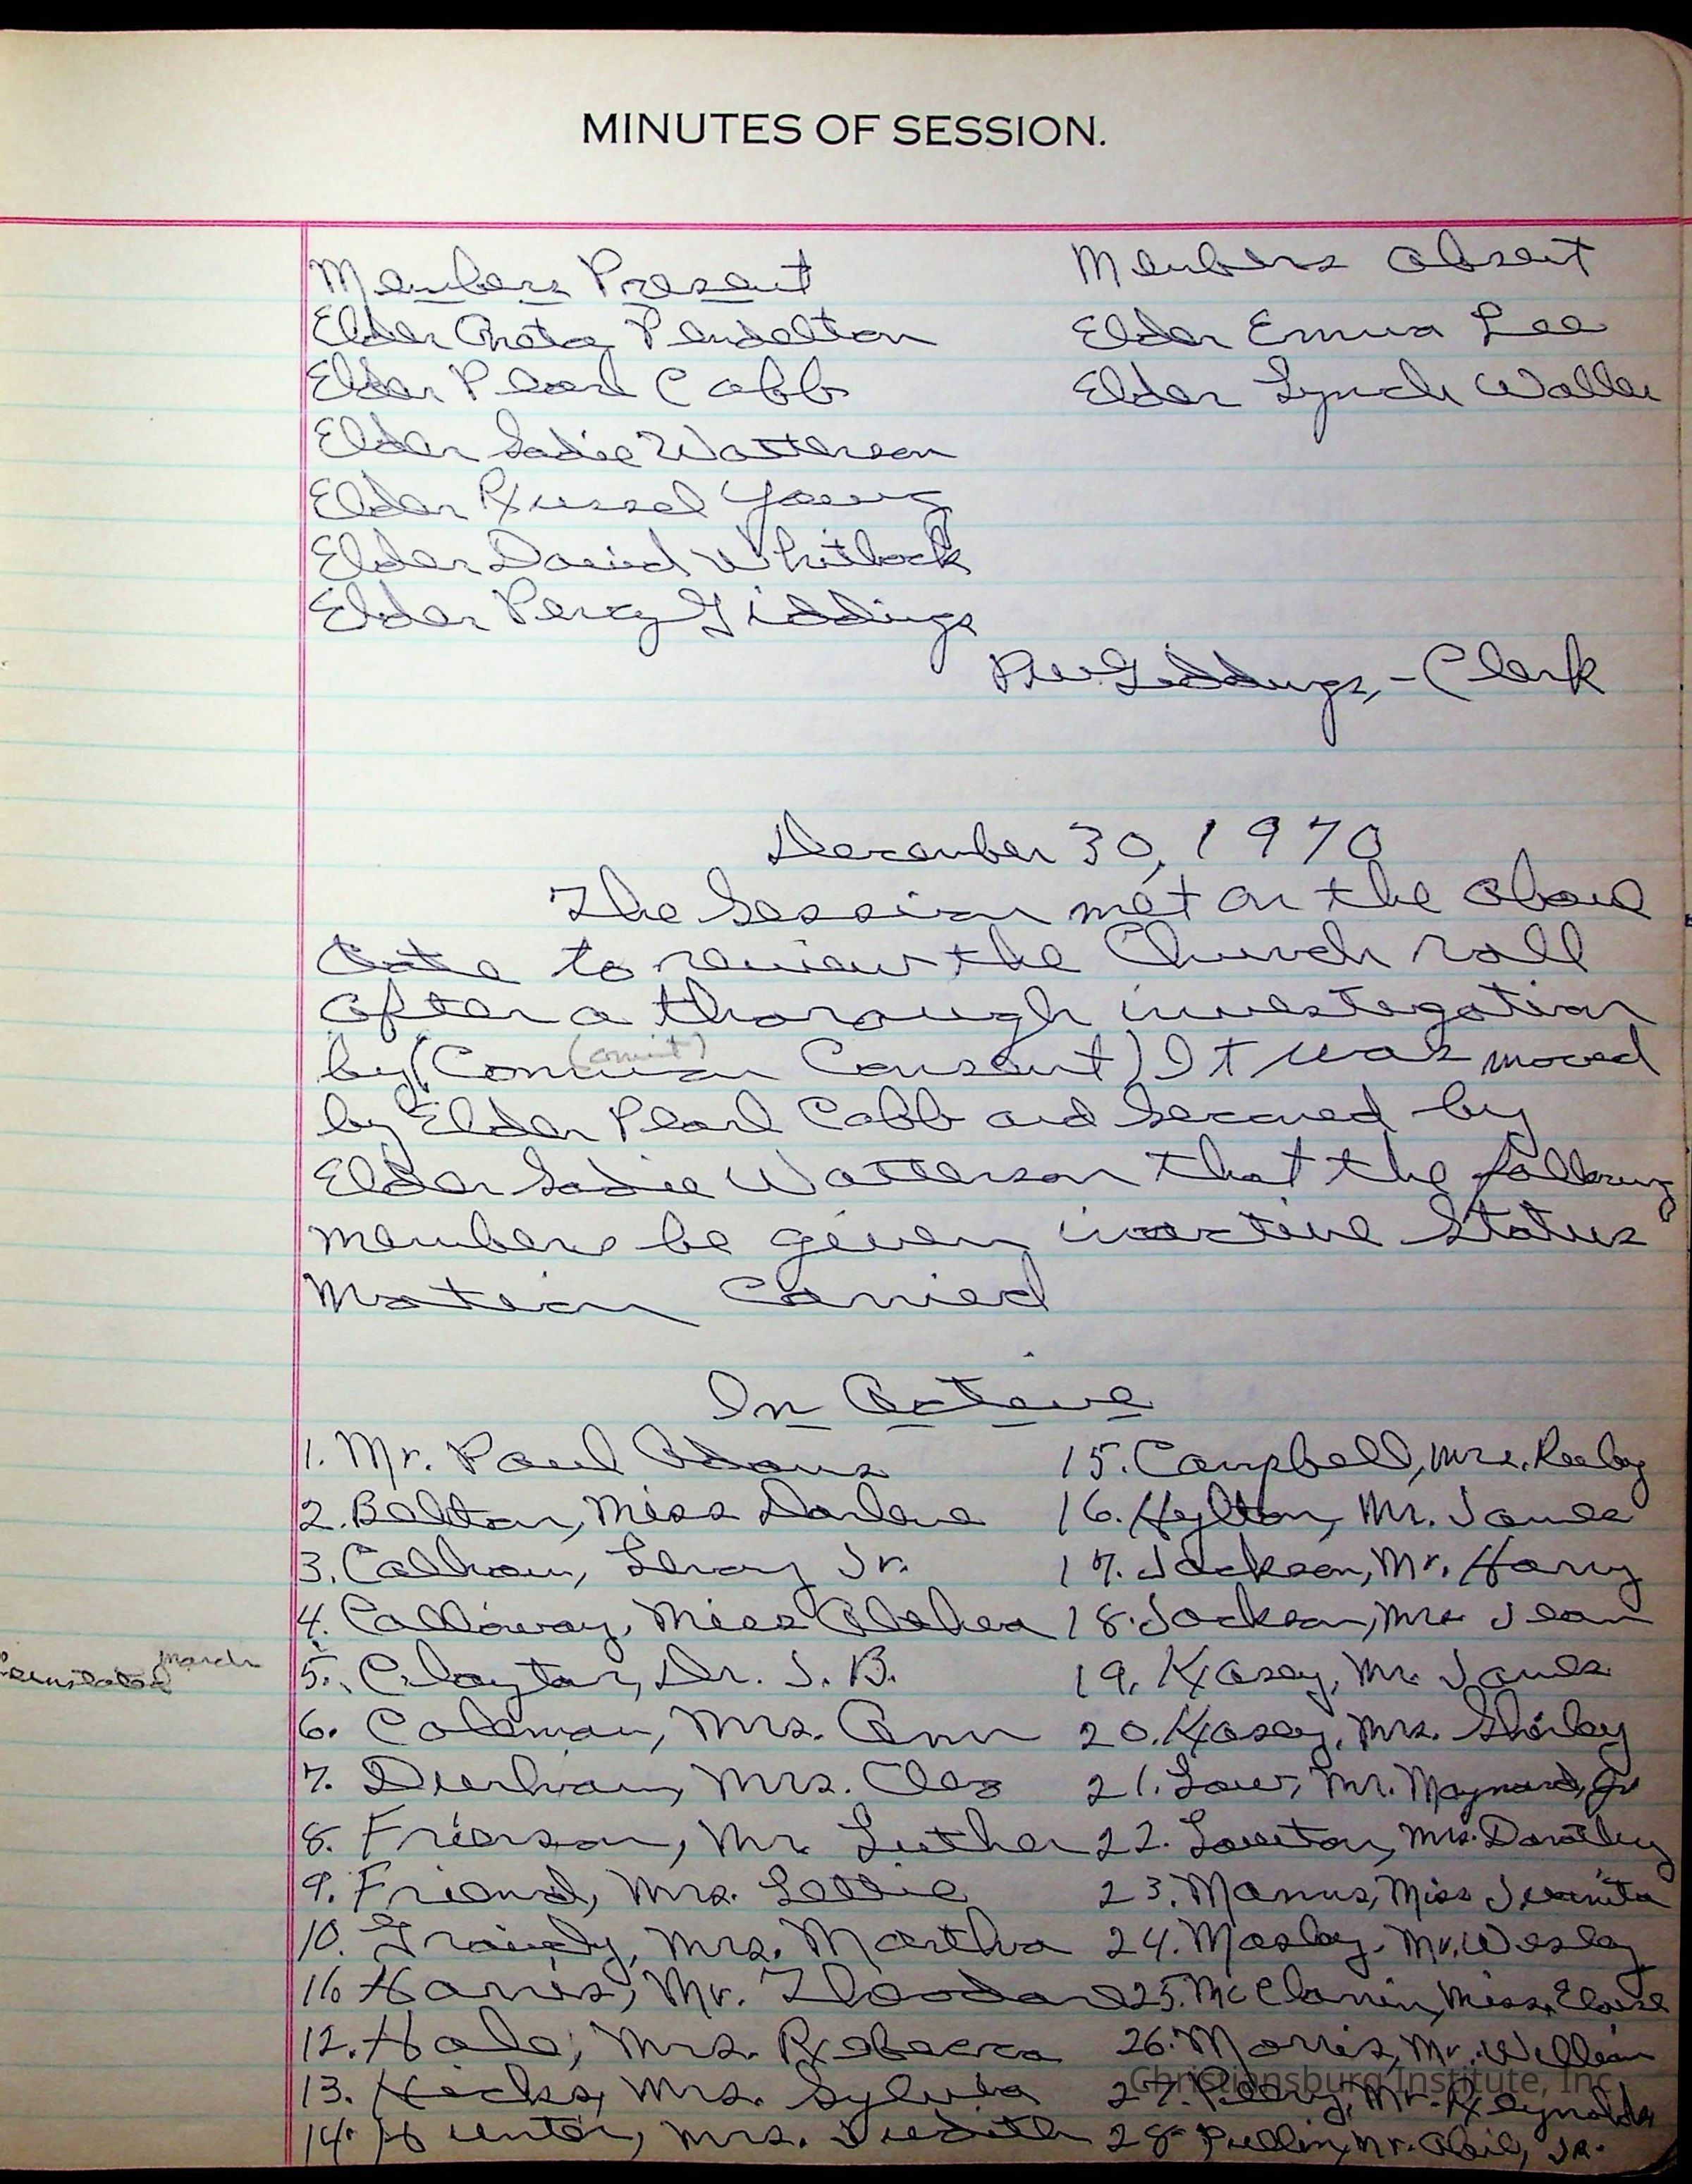 MINUTES OF SESSION.
Members Present
Members absent
Elder Pendelton
Elder Emma Lee
Elder Pearl Cobb
Elder Lynch Waller
Elder Sadie Watterson
Elder Russel Young
Elder David Whitlock
Elder Percy Giddings
Giddings, - Clerk
December 30, 1970
The Session met on the above
date to review the Church roll
after a thorough investegation
(omit)
by (Common Consent) It was moved
by Elder Pearl Cobb and Second by
Elder Sadie Watterson that the following
members be given inactive Status
Motion Carried
In Active
1. Mr. Paul Adams
15. Campbell, Mrs. Ruby
2. Bolton, Miss Darlene
16. Hylton, Mr. James
3. Calhoun, Leroy Jr.
17. Jackson, Mr. Harry
4. Calloway, Miss Alethea
18. Jackson, Mrs Jean
March
5. Clayton, Dr. J. B.
19. Kasey, Mr. James
6. Coleman, Mrs. Ann
20. Kasey, Mrs. Shirley
7. Durham, Mrs. Cleo
21. Law, Mr. Maynard, Jr
8. Frierson, Mr. Luther
22. Lawton, Mrs. Dorothy
9. Friend, Mrs. Lottie
23. Manns, Miss Juanita
10. Grandy, Mrs. Martha
24. Mosby, Mr. Wesley
11. Harris, Mr. Theodore
25. McClanin, Miss, Eloise
12. Hale, Mrs. Rebecca
26. Morris, Mr. William
13. Hicks, Mrs. Sylvia
27. Perry, Mr. Reynolds
14. Hunter, Mrs. Judith
28. Pullin, Mr. Jr.
Christiansburg Institute, Inc.